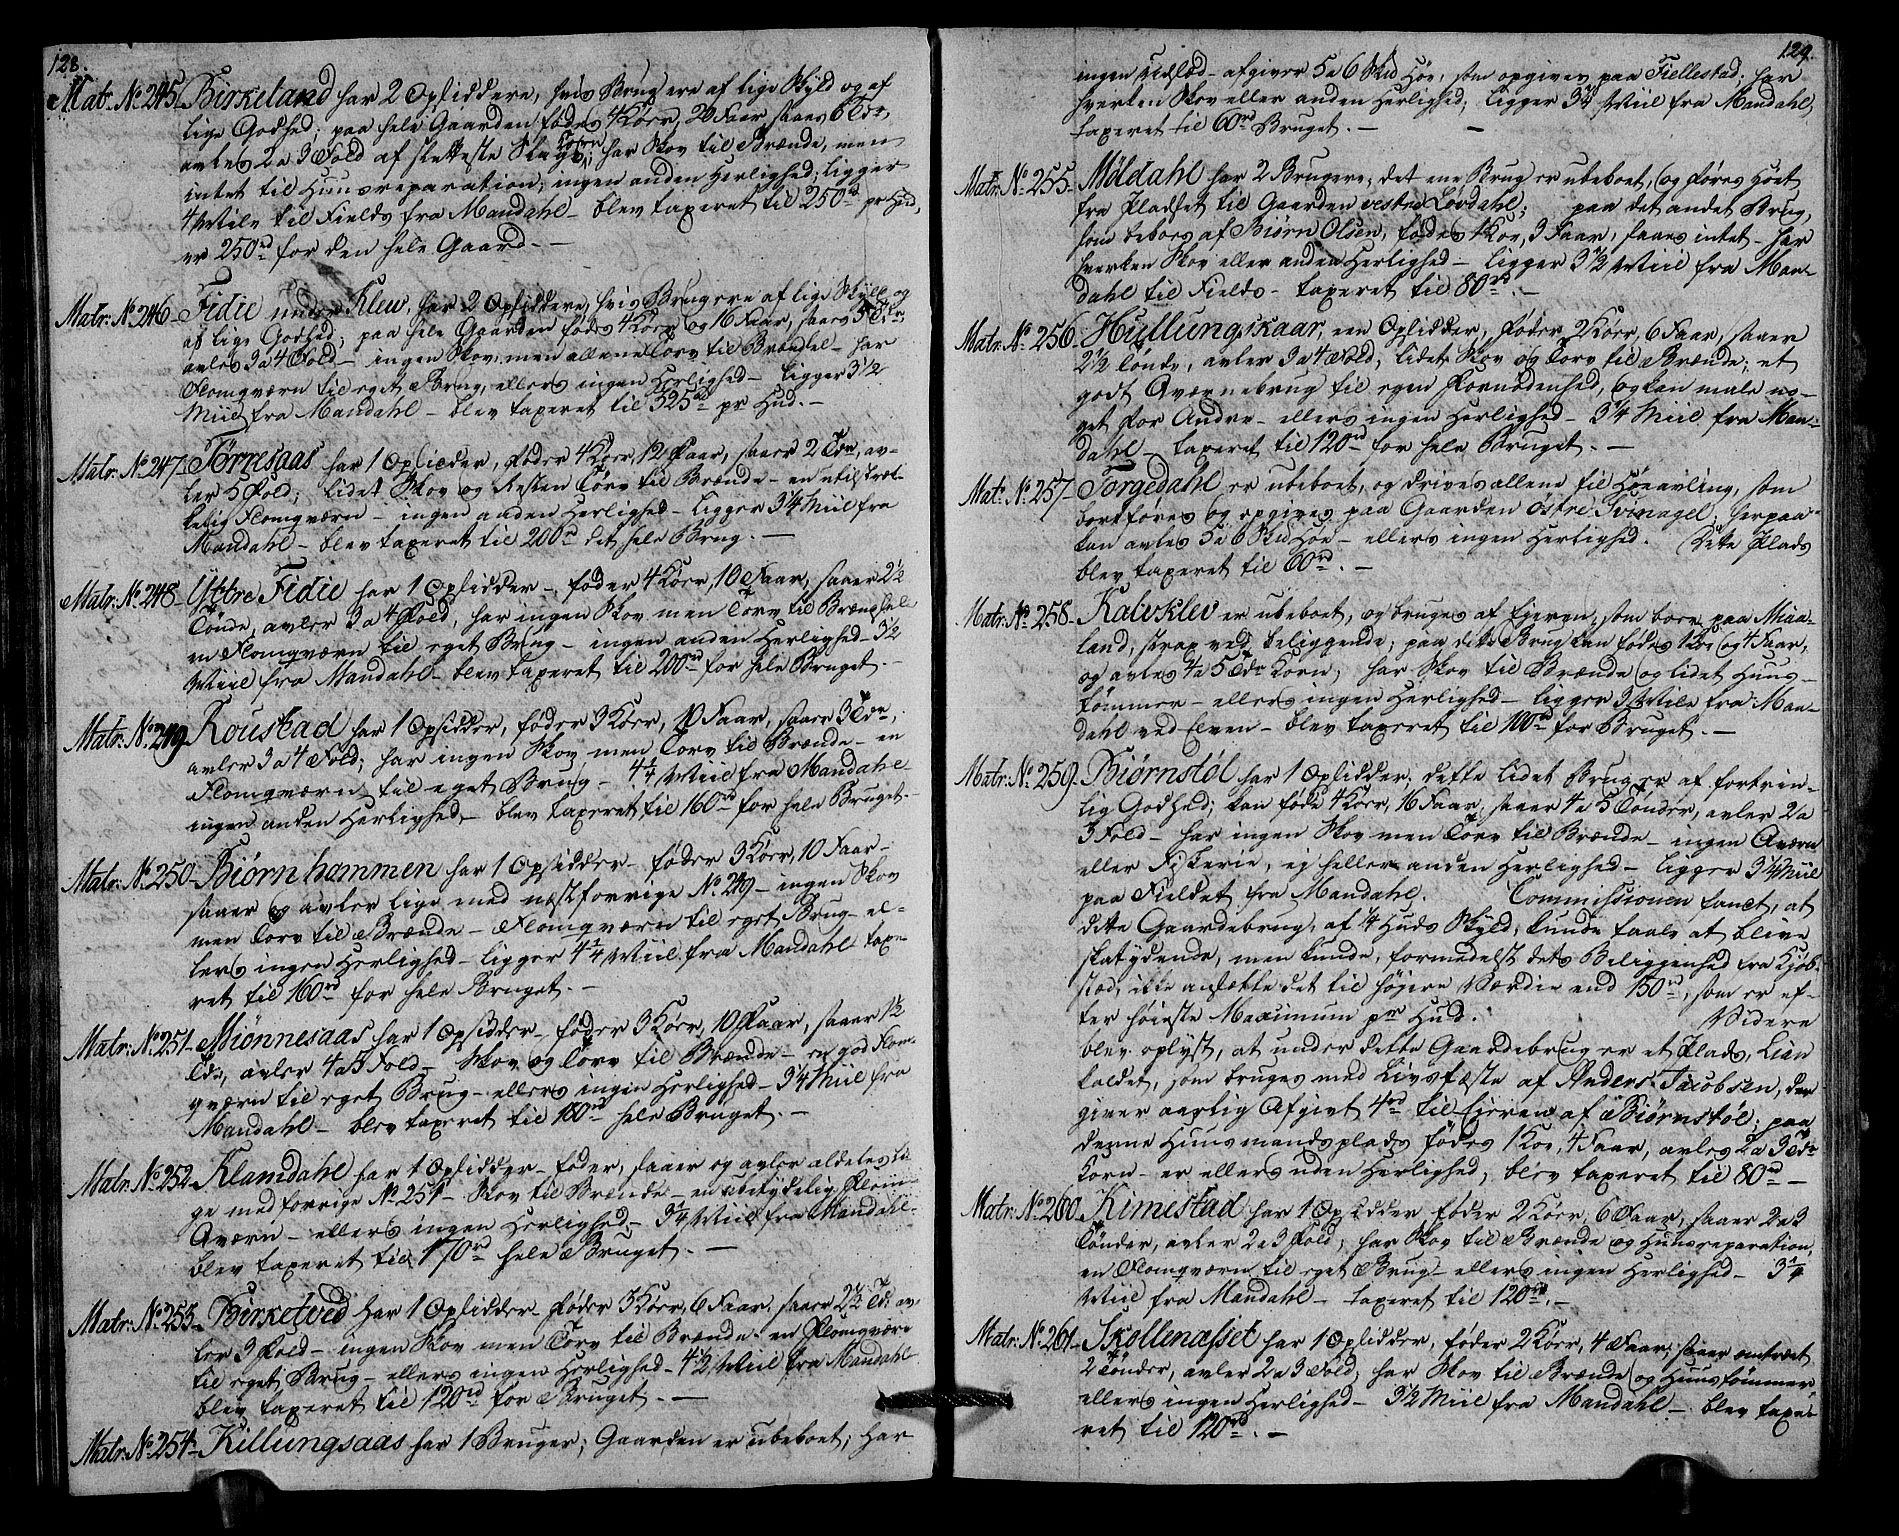 128.
Matr: No 245. Birkeland har 2 Opsiddere, hvis Brug ere af lige Skyld og af
lige Godhed; paa hele Gaarden fødes 4 Kører, 20 Faar, saaes 6 Tdr,
avles 2 a 3 Fold af sletteste Slags Korn; har Skov til Brænde, men
intet til Huusreparation; ingen anden Herlighed; ligger
4 Miile til Fields fra Mandahl – blev taxeret til 250 rd pr Hud,
er 250 rd for den hele Gaard. –
Matr: No 246 – Fidie under Klew, har 2 Opsiddere, hvis Brug ere af lige Skyld og
af lige Godhed; paa hele Gaarden fødes 4 Kører og 16 Faar, saaes 5 Tdr,
avles 3 a 4 Fold – ingen Skov, men allene Torv til Brændsel – har
Flomqværn til eget Brug, ellers ingen Herlighed – ligger 3 1/2
Miil fra Mandahl – blev taxeret til 325 rd pr Hud. –
Matr: No 247 – Tørresaas har 1 Opsidder, føder 4 Kører, 12 Faar, saaer 2 Tdr, av-
ler 5 Fold; lidet Skov og Resten Torv til Brænde – en utilstræk-
kelig Flomqværn – ingen anden Herlighed – ligger 3 1/4 Miil fra
Mandahl – blev taxeret til 200 rd det hele Brug. –
Matr: No 248 – Yttre Fidie har 1 Opsidder – føder 4 Kører, 10 Faar, saaer 2 1/2
Tønde, avler 3 a 4 Fold, har ingen Skov men Torv til Brændsel
en Flomqværn til eget Brug – ingen anden Herlighed – 3 1/2
Miil fra Mandahl – blev taxeret til 200 rd for hele Bruget. –
Matr: No 249 Roustad har 1 Opsidder, føder 3 Kører, 10 Faar, saaer 3 Tdr,
avler 3 a 4 Fold; har ingen Skov, men Torv til Brænde – en
Flomqværn til eget Brug – 4 1/4 Miil fra Mandahl
ingen anden Herlighed, – blev taxeret til 160 rd for hele Bruget. –
Matr: No 250 – Biørnhammen har 1 Opsidder – føder 3 Kører, 10 Faar –
saaer og avler lige med næstforrige No 249 – ingen Skov
men Torv til Brænde – Flomqværn til eget Brug – el-
lers ingen Herlighed – ligger 4 1/4 Miil fra Mandahl taxe-
ret til 160 rd for hele Bruget. –
Matr: No 251 – Miønnesaas har 1 Opsidder – føder 3 Kører, 10 Faar, saaer
Tdr, avler 4 a 5 Fold – Skov og Torv til Brænde – en god Flom-
qværn til eget Brug – ellers ingen Herlighed – 3 1/4 Miil fra
Mandahl – blev taxeret til 180 rd hele Bruget. –
Matr: No 252 – Klamdahl har 1 Opsidder – føder, saaer og avler aldeles li-
ge med forrige No 251 – Skov til Brænde – en ubetydelig Flom-
Qværn – ellers ingen Herlighed – 3 1/4 Miil fra Mandahl –
blev taxeret til 170 rd hele Bruget. –
Matr: No 253 – Birketved har 1 Opsidder – føder 3 Kører, 6 Faar, saaer 2 1/2 Td: av-
ler 3 Fold – ingen Skov men Torv til Brænde – en Flomqværn
til eget Brug – ellers ingen Herlighed – 4 1/2 Miil fra Mandahl
blev taxeret til 120 rd for Bruget. –
Matr: No 254 – Killungsaas har 1 Bruger; Gaarden er ubeboet; har
129.
ingen Udsæd – afgiver 5 a 6 Skd Høe, som opgives paa Fiellestad; har
hverken Skov eller anden Herlighed; ligger 3 3/4 Miil fra Mandahl,
taxeret til 60 rd Bruget. –
Matr: No 255 – Møldahl har 2 Brugere; det ene Brug er ubeboet, og føres Høet
fra Pladset til Gaarden vestre Løvdahl; paa det andet Brug,
som beboes af Biørn Olsen, fødes 1 Koe, 3 Faar, saaes intet – har
hverken Skov eller anden Herlighed – ligger 3 1/2 Miil fra Man-
dahl til Fields – taxeret til 80 rd. –
Matr: No 256 – Hullungskaar, en Opsidder, føder 2 Kører, 6 Faar, saaer
2 1/2 Tønde, avler 3 a 4 Fold, lidet Skov og Torv til Brænde; et
godt Qværnebrug til egen Fornødenhed, og kan male no-
get for Andre – ellers ingen Herlighed – 3 1/4 Miil fra Man-
dahl – taxeret til 120 rd for hele Bruget. –
Matr: No 257 – Torgedahl er ubeboet, og drives allene til Høeavling, som
bortføres og opgives paa Gaarden østre Tvinagel; herpaa
kan avles 5 a 6 Skd Høe – ellers ingen Herlighed. Dette Plads
blev taxeret til 60 rd. –
Matr: No 258 – Kalvklev er ubeboet, og bruges af Eieren, som boer paa Miaa-
land, strax ved beliggende; paa dette Brug kan fødes 1 Koe og 4 Faar,
og avles 4 a 5 Tdr Korn; har Skov til Brænde og lidet Huus-
tømmer – ellers ingen Herlighed – ligger 3 Miile fra Man-
dahl ved Elven – blev taxeret til 100 rd for Bruget. –
Matr: No 259 – Biørnstøl har 1 Opsidder. dette lidet Brug er af fortrin-
lig Godhed; kan føde 4 Kører, 16 Faar, saaer 4 a 5 Tønder, avler 2 a
3 Fold – har ingen Skov men Torv til Brænde – ingen Qværn
eller Fiskerie, ej heller anden Herlighed – ligger 3 1/4 Miil
paa Fieldet fra Mandahl. Commissionen fandt, at
dette Gaardebrug, af 1/4 Huds Skyld, kunde taale at blive
skatydende, men kunde, formedelst dets Beliggenhed fra Kjøb-
stæd, ikke ansætte det til høiere Værdie end 150 rd, som er ef-
ter høieste Maximum pr Hud. Videre
blev oplyst, at under dette Gaardebrug er et Plads, Lian
kaldet, som bruges med Livsfæste af Anders Jacobsen, der
giver aarlig Afgivt 4 rd til Eieren af Biørnstøl; paa
denne Huusmandsplads fødes 1 Koe, 4 Faar, avles 2 a 3 Tdr
Korn – er ellers uden Herlighed, blev taxeret til 80 rd –
Matr: No 260 – Kimestad har 1 Opsidder føder 2 Kører, 6 Faar, saaer 2 a 3
Tønder, avler 2 a 3 Fold; har Skov til Brænde og Huusreparation,
en Flomqværn til eget Brug – ellers ingen Herlighed – 3 1/4
Miil fra Mandahl – taxeret til 120 rd. –
Matr: No 261 – Skollenæsset har 1 Opsidder, føder 2 Kører, 4 Faar; saaer omtrent
2 Tønder, avler 2 a 3 Fold; har Skov til Brænde og Huustømmer,
ellers ingen Herlighed – 3 1/2 Miil fra Mandahl – blev taxe-
ret til 120 rd. –